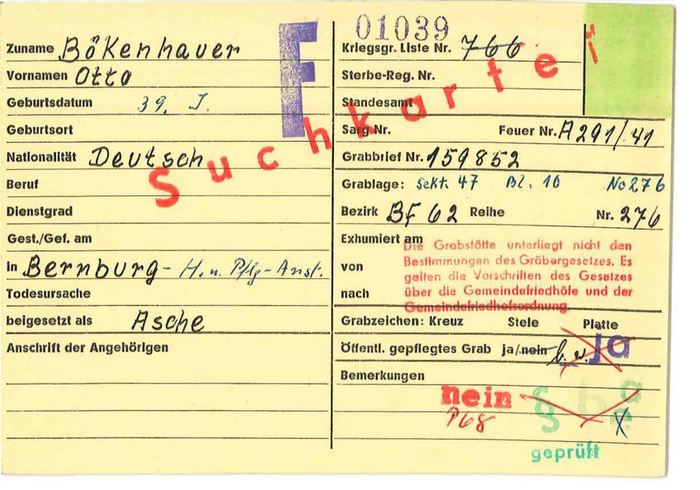 01039
F
Suchkartei
Zuname Bökenhauer
Vornamen Otto
Geburtsdatum 39. J.
Geburtsort
Nationalität Deutsch
Beruf
Dienstgrad
Gest./Gef. am
in Bernburg - H. u. Pflg-Anst.
Todesursache
beigesetzt als Asche
Anschrift der Angehörigen
Kriegsgr. Liste Nr. 766
Sterbe-Reg. Nr.
Standesamt
Sarg Nr. Feuer Nr. A291/41
Grabbrief Nr. 159852
Grablage: Sekt. 47 Bl. 10 No 276
Bezirk BF 62 Reihe Nr. 276
Exhumiert am
von
nach
Die Grabstätte unterliegt nicht den
Bestimmungen des Gräbergesetzes. Es
gelten die Vorschriften des Gesetzes
über die Gemeindefriedhöfe und der
Gemeindefriedhofsordnung.
Grabzeichen: Kreuz Stele Platte
Öffentl. gepflegtes Grab ja/nein ja
Bemerkungen
nein
P68
geprüft